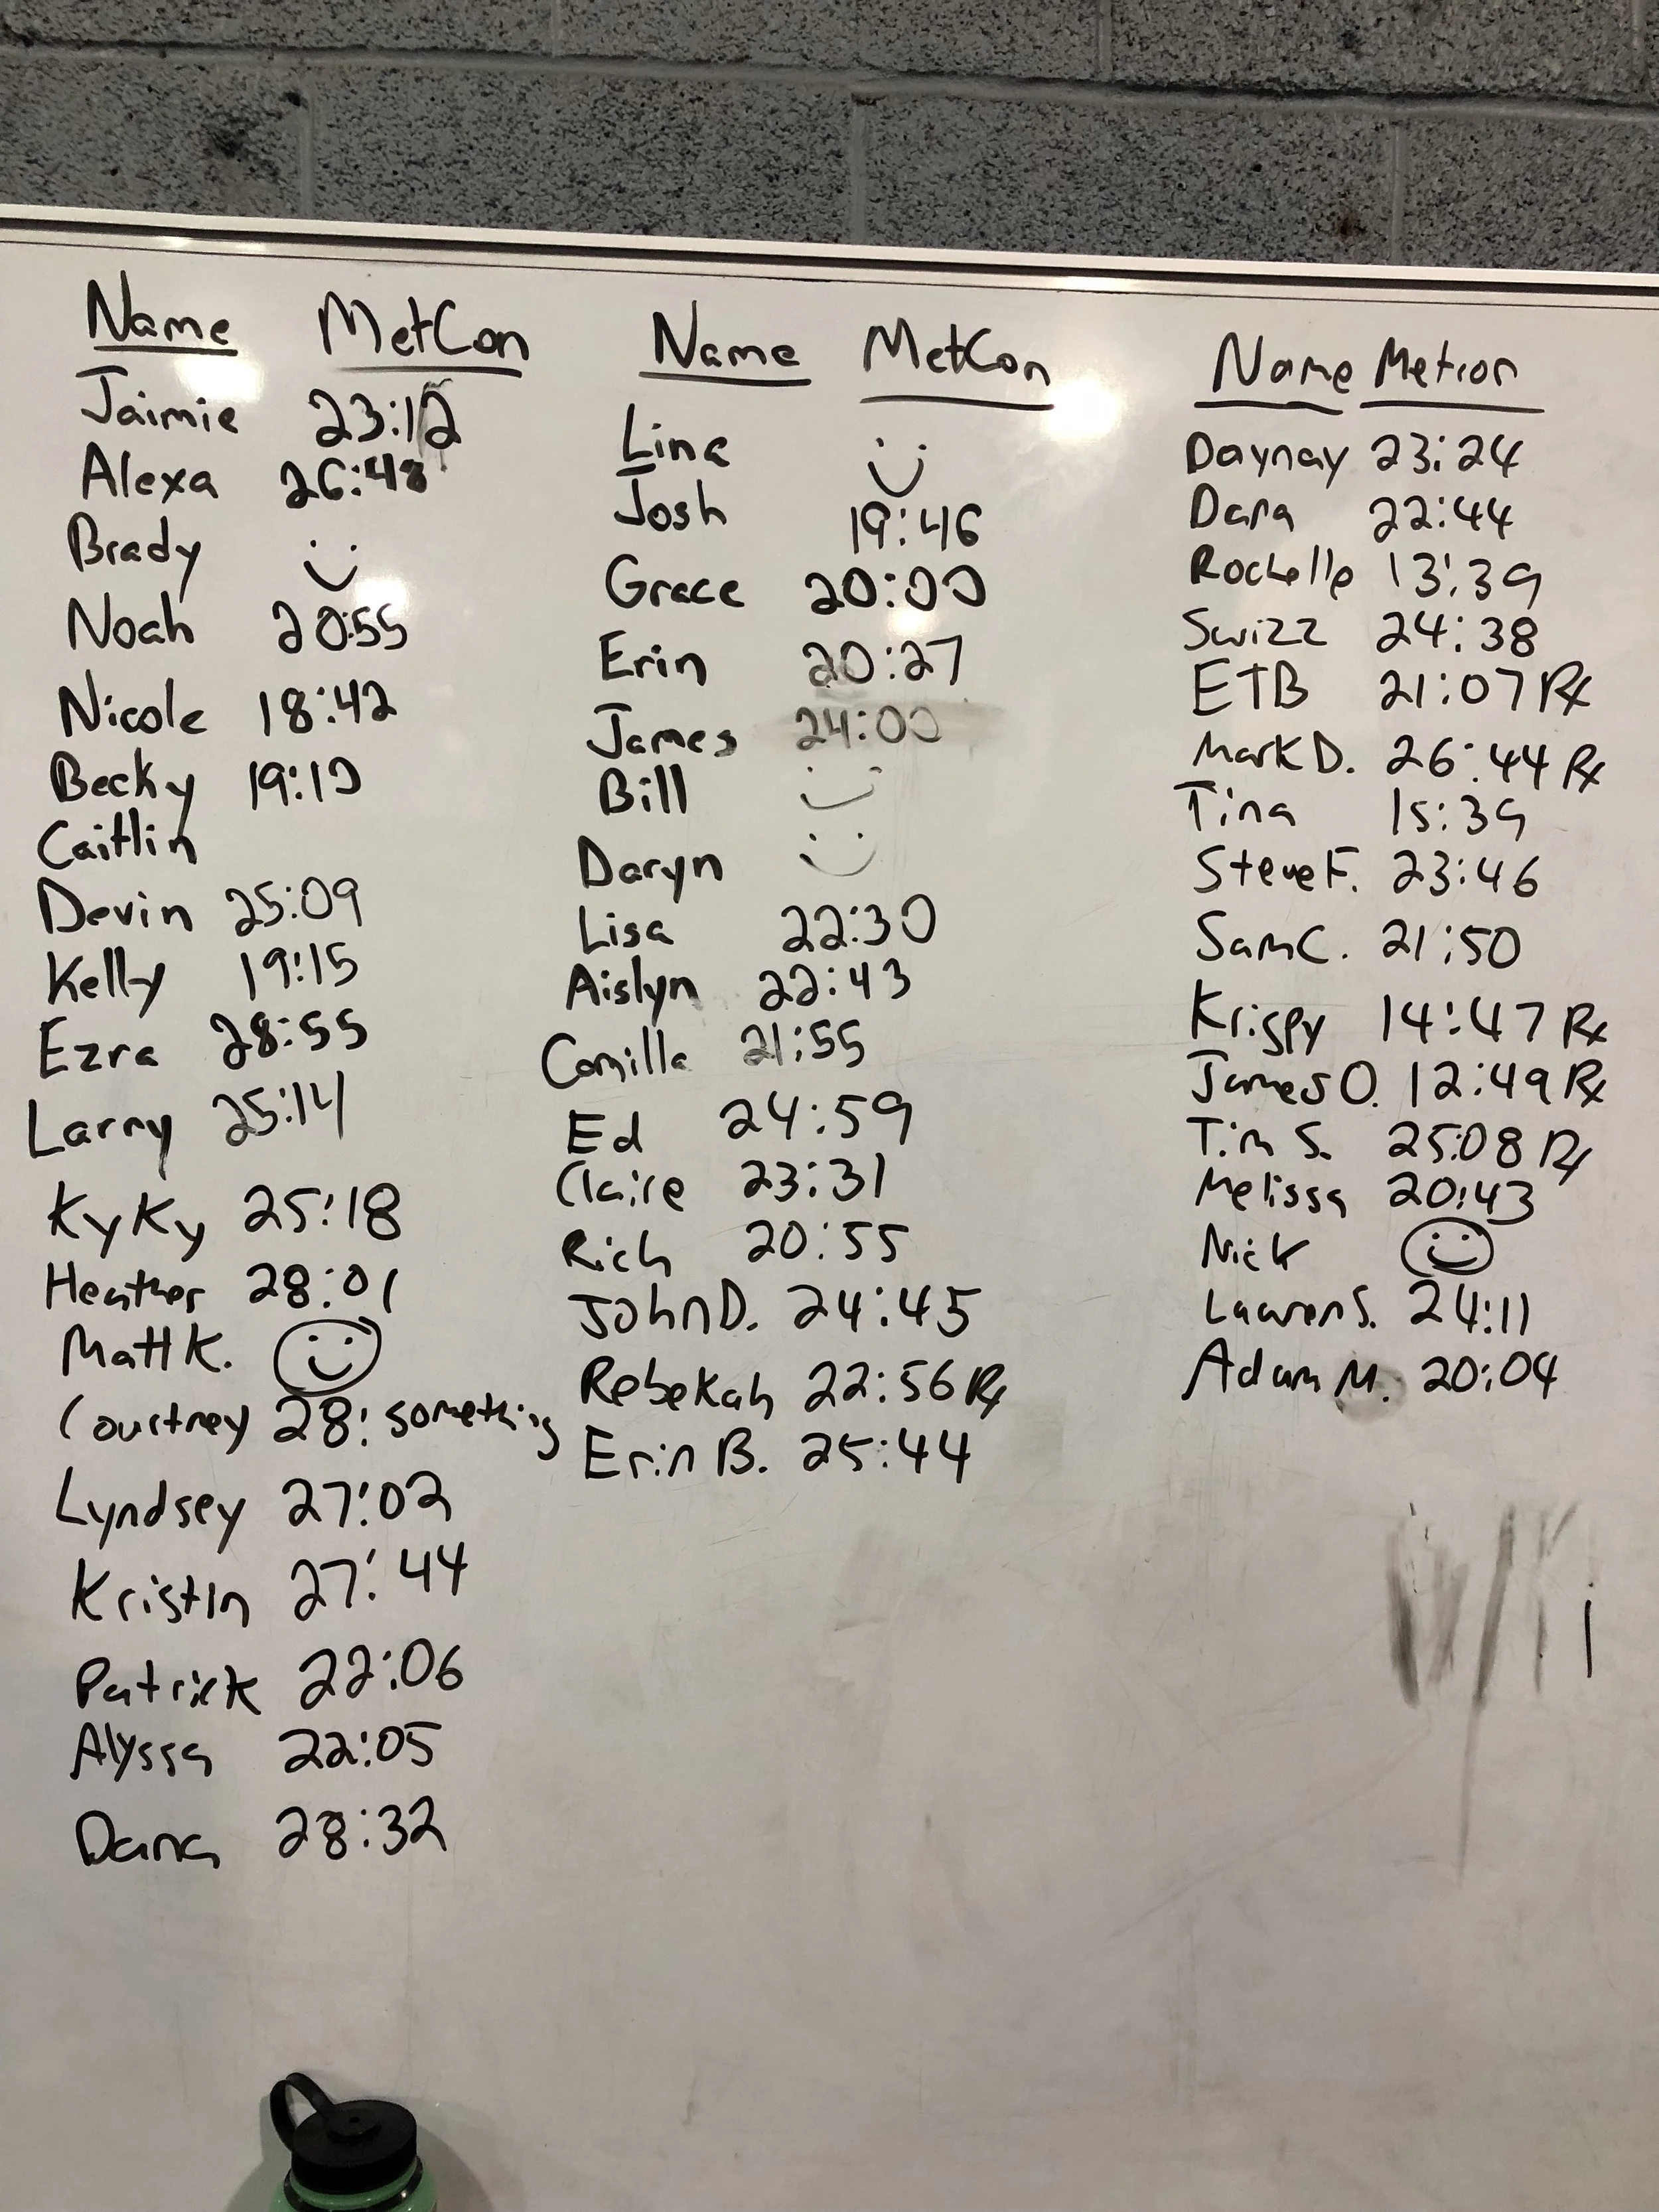 Name MetCon
Jaimie 23:12
Alexa 26:48
Brady :)
Noah 20:55
Nicole 18:42
Becky 19:10
Caitlin
Devin 25:09
Kelly 19:15
Ezra 28:55
Larry 25:14
KyKy 25:18
Heather 28:01
Matt K. :)
Courtney 28: something
Lyndsey 27:02
Kristin 27:44
Patrick 22:06
Alyssa 22:05
Dana 28:32
Name MetCon
Lina :)
Josh 19:46
Grace 20:00
Erin 20:27
James 24:00
Bill :)
Daryn :)
Lisa 22:30
Aislyn 22:43
Camilla 21:55
Ed 24:59
Claire 23:31
Rich 20:55
John D. 24:45
Rebekah 22:56 Rx
Erin B. 25:44
Name Metcon
Daynay 23:24
Dana 22:44
Rochelle 13:39
Swizz 24:38
ETB 21:07 Rx
Mark D. 26:44 Rx
Tina 15:39
Steve F. 23:46
Sam C. 21:50
Krispy 14:47 Rx
James O. 12:49 Rx
Tim S. 25:08 Rx
Melissa 20:43
Nick :)
Lauren S. 24:11
Adam M. 20:04